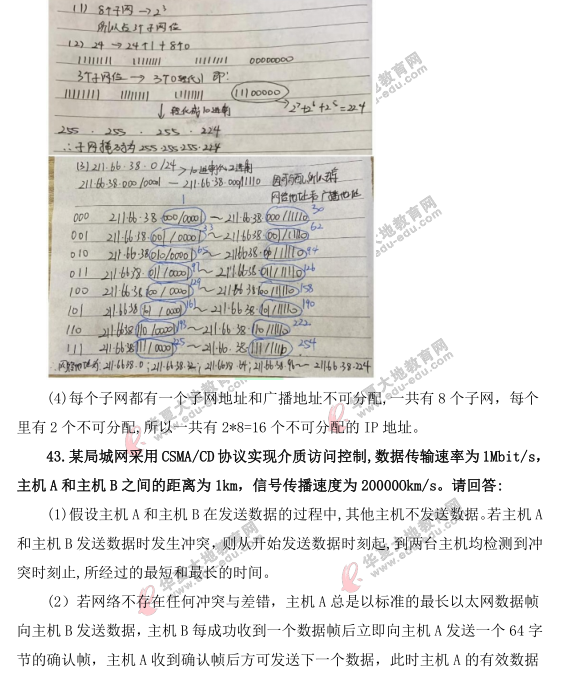 (1) 8个子网 → 2³
所以占3个子网位
(2) 24 → 24个1+8个0
11111111 11111111 11111111 00000000
3个子网位 → 3个0替代1 即:
11111111 11111111 11111111 11100000
↓ 转化成10进制 2⁷+2⁶+2⁵=224
255 . 255 . 255 . 224
∴子网掩码为 255.255.255.224
(3) 211.66.38.0/24
211.66.38.000/00001 — 211.66.38.000/11110
000 211.66.38.000/00001 ~ 211.66.38.000/11110 30
001 211.66.38.001/00001 33 ~ 211.66.38.001/11110 62
010 211.66.38.010/00001 65 ~ 211.66.38.010/11110 94
011 211.66.38.011/00001 97 ~ 211.66.38.011/11110 126
100 211.66.38.100/00001 129 ~ 211.66.38.100/11110 158
101 211.66.38.101/00001 161 ~ 211.66.38.101/11110 190
110 211.66.38.110/00001 193 ~ 211.66.38.110/11110 222
111 211.66.38.111/00001 225 ~ 211.66.38.111/11110 254
网络地址为: 211.66.38.0; 211.66.38.32; 211.66.38.64; 211.66.38.96 ~ 211.66.38.224
(4)每个子网都有一个子网地址和广播地址不可分配,一共有 8 个子网，每个
里有 2 个不可分配,所以一共有 2*8=16 个不可分配的 IP 地址。
43.某局城网采用 CSMA/CD 协议实现介质访问控制,数据传输速率为 1Mbit/s，
主机 A 和主机 B 之间的距离为 1km，信号传播速度为 200000km/s。请回答:
(1)假设主机 A 和主机 B 在发送数据的过程中,其他主机不发送数据。若主机 A
和主机 B 发送数据时发生冲突，则从开始发送数据时刻起,到两台主机均检测到冲
突时刻止,所经过的最短和最长的时间。
(2）若网络不存在任何冲突与差错，主机 A 总是以标准的最长以太网数据帧
向主机 B 发送数据，主机 B 每成功收到一个数据帧后立即向主机 A 发送一个 64 字
节的确认帧，主机 A 收到确认帧后方可发送下一个数据，此时主机 A 的有效数据
华夏大地教育网
www.edu-edu.com